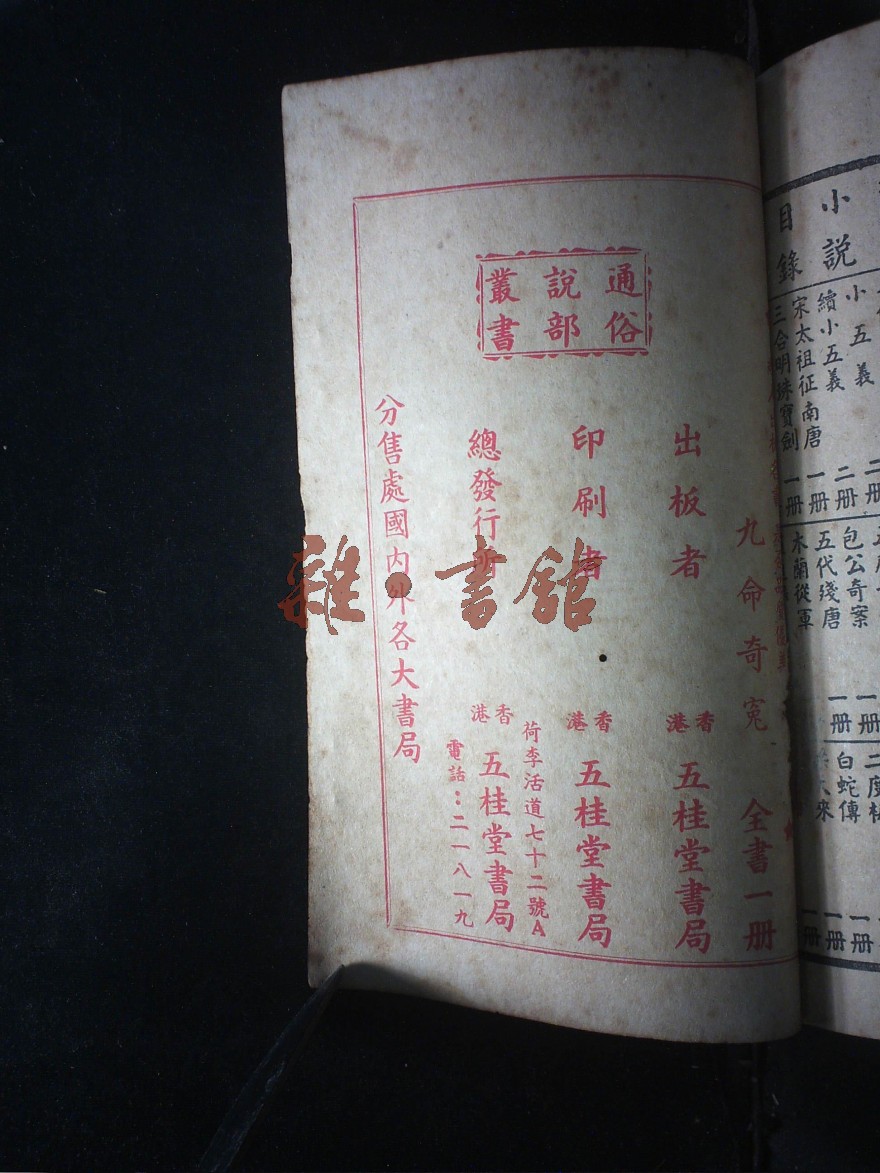 小説
目錄
小五義
二册
續小五義
二册
宋太祖征南唐
一册
三合明珠寶劍
一册
包公奇案
一册
五代殘唐
一册
木蘭從軍
白蛇傳
一册
一册
通俗
說部
叢書
九命奇冤 全書一册
出板者
香港
五桂堂書局
印刷者
香港
五桂堂書局
荷李活道七十二號A
總發行所
香港
五桂堂書局
電話：二一八一九
分售處國內外各大書局
雜·書館